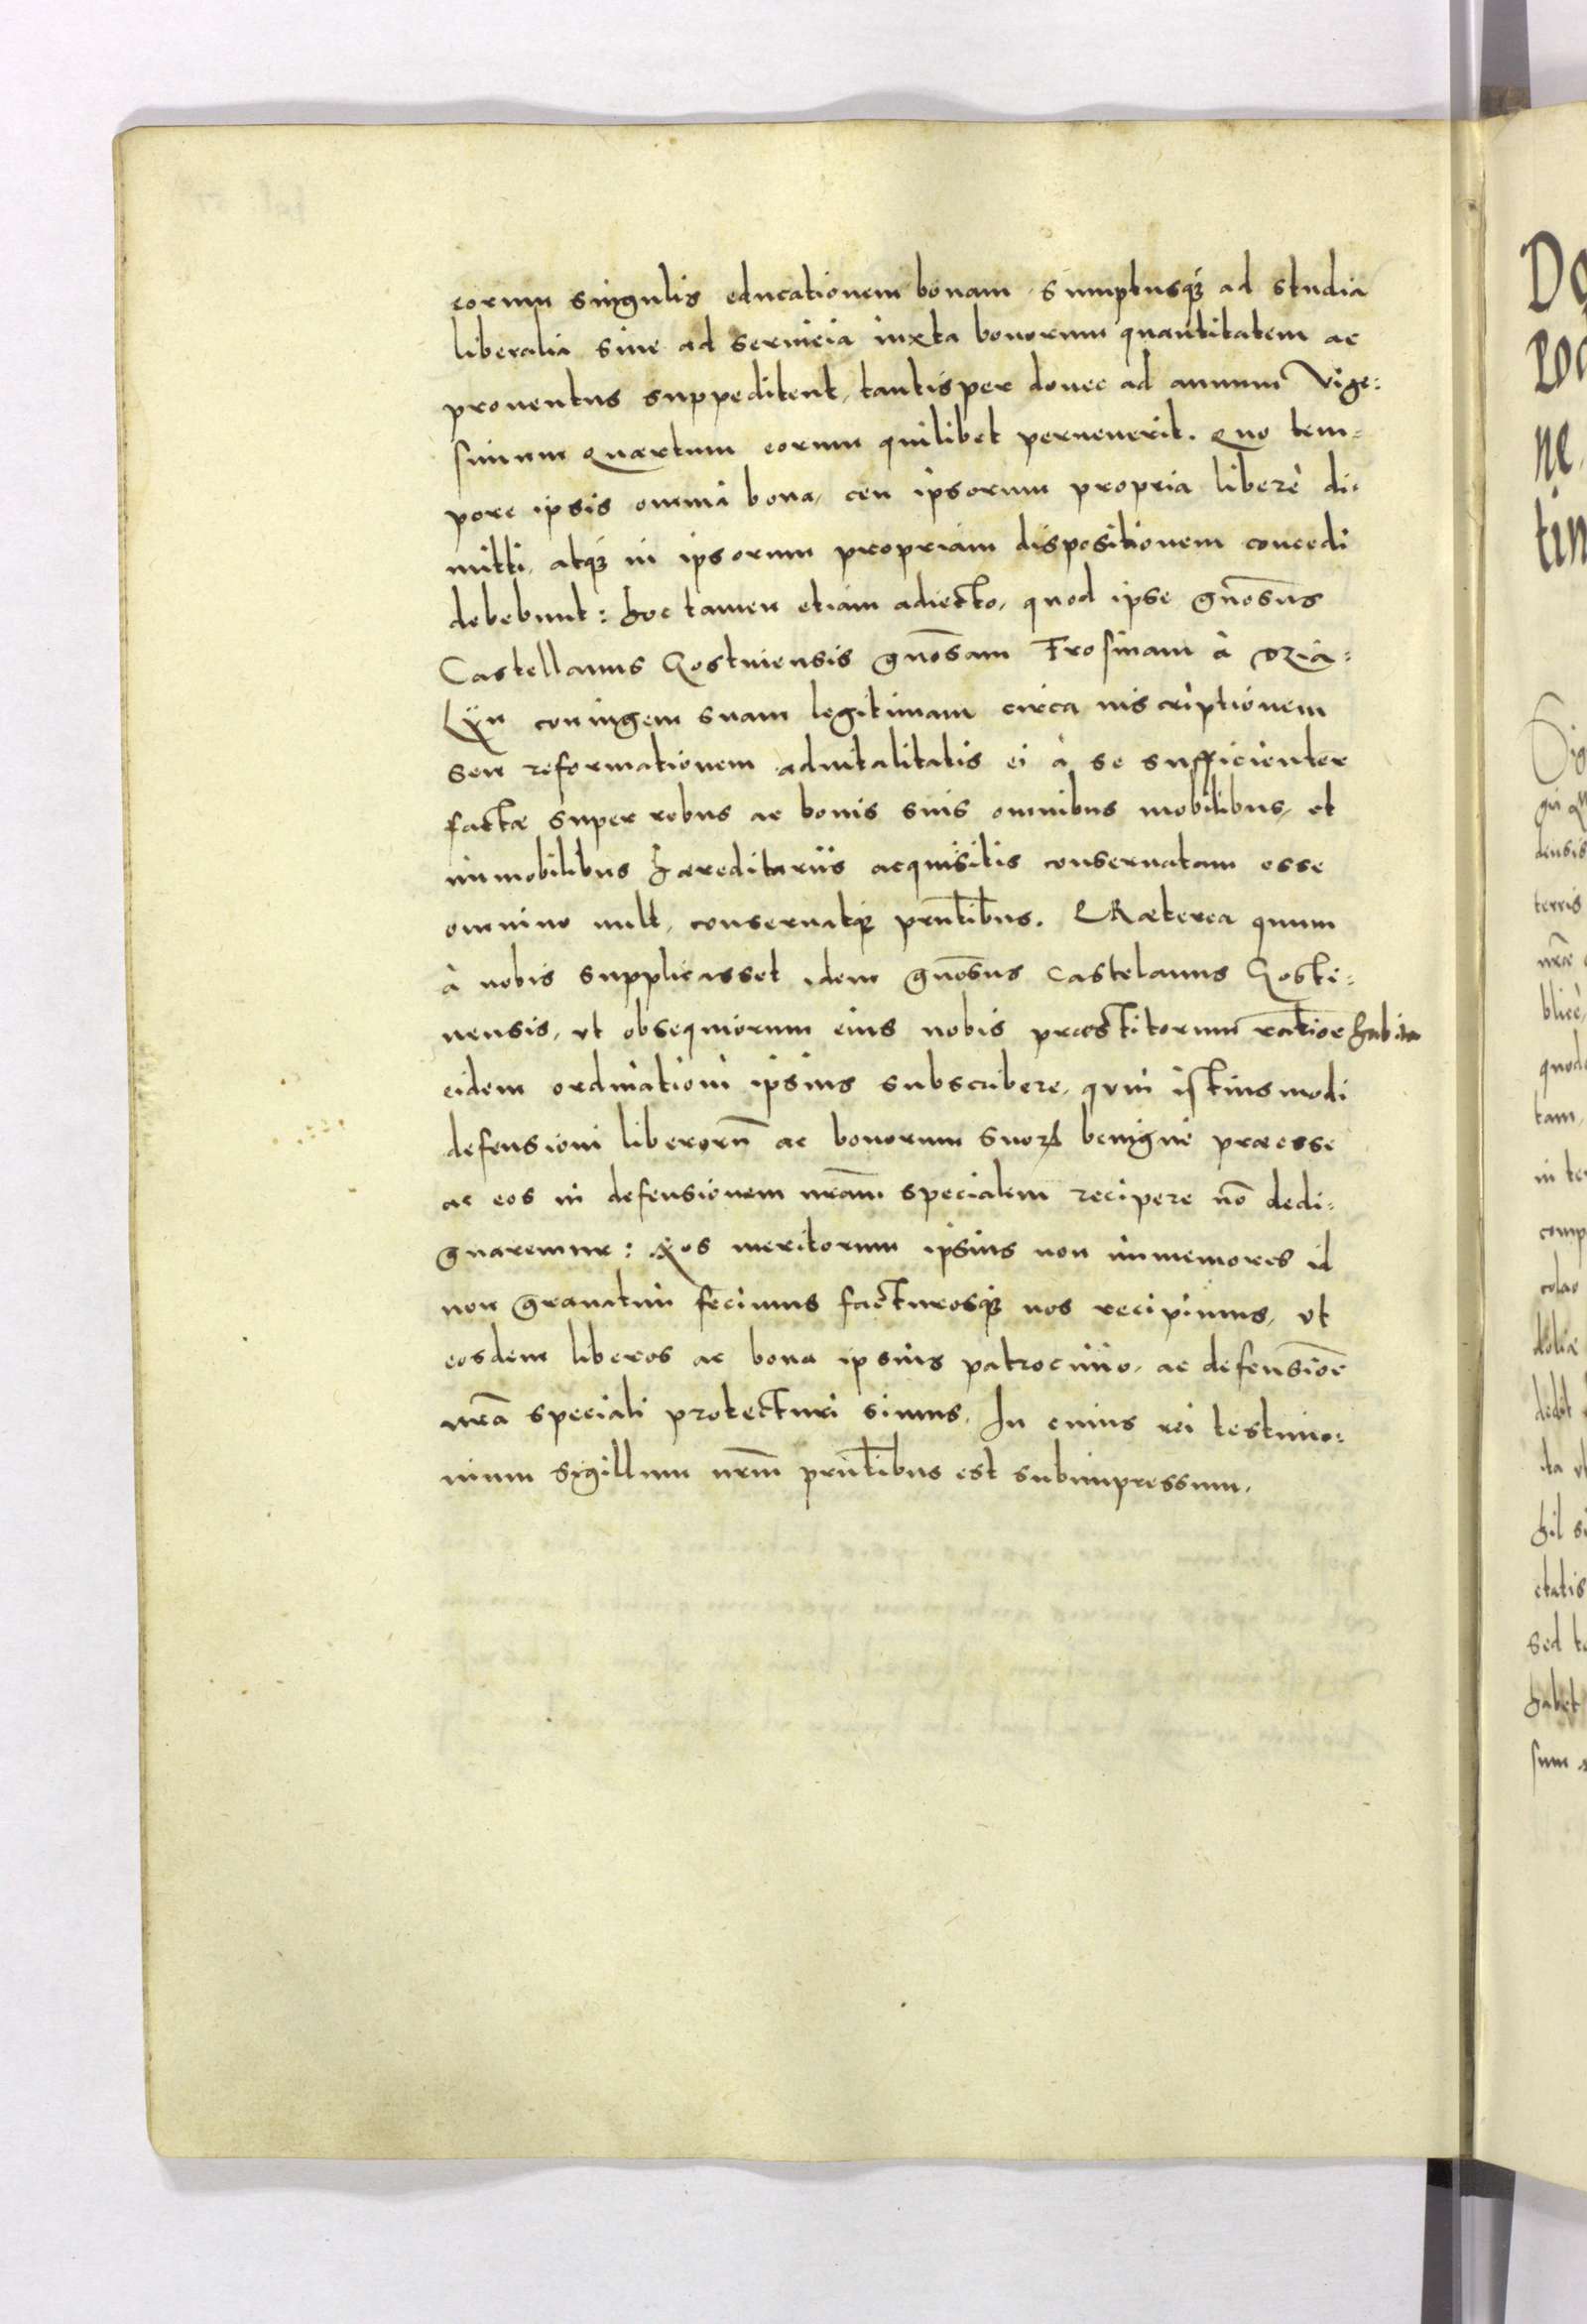 eorum singulis educationem bonam, sumptusq̃ ad studia
liberalia siue ad seruicia iuxta bonorum quantitatem ac
prouentus suppeditent, tantisper donec ad annum Vige:
simum quartum eorum quilibet peruenerit. Quo tem-
pore ipsis omnia bona, ceu ipsorum propria liberè di-
mitti, atq̃ in ipsorum propriam dispositionem concedi
debebunt: hoc tamen etiam adiecto, quod ipse gñosus
Castellanus Gostinensis gñosam Frosinam à
coniugem suam legitimam circa inscriptionem
seu reformationem aduitalitatis ei à se sufficienter
factæ super rebus ac bonis suis omnibus mobilibus, et
immobilibus hæreditariis acquisitis conseruatam esse
omnino uult, conseruatq̃ prñtibus. Præterea quum
à nobis supplicasset idem gñosus Castelanus Gosti:
nensis, vt obsequiorum eius nobis præstitorum ratiõe habita
eidem ordinationi ipsius subscribere, quin istiusmodi
defensioni liberorũ ac bonorum suorꝝ benignè præesse
ac eos in defensionem nrãm specialem recipere nõ dedi-
gnaremur: Nos meritorum ipsius non immemores id
non grauatim fecimus facturosq̃ nos recipimus, vt
eosdem liberos ac bona ipsius patrocinio, ac defensiõe
nrã speciali protecturi simus, In cuius rei testimo:
nium sigillum nrm̃ prñtibus est subimpressum.